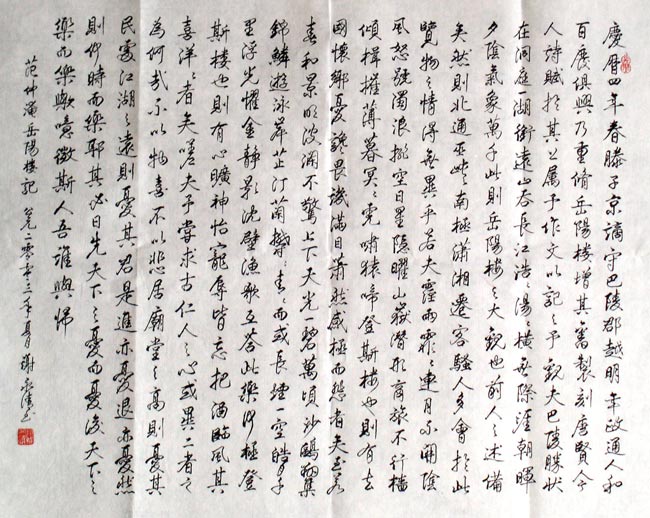 慶曆四年春滕子京謫守巴陵郡越明年政通人和
百廢俱興乃重脩岳陽樓增其舊製刻唐賢今
人詩賦於其上屬予作文以記之予觀夫巴陵勝狀
在洞庭一湖銜遠山吞長江浩〻湯〻橫無際涯朝暉
夕陰氣象萬千此則岳陽樓之大觀也前人之述備
矣然則北通巫峽南極瀟湘遷客騷人多會於此
覽物之情得無異乎若夫霪雨霏〻連月不開陰
風怒號濁浪排空日星隱曜山嶽潛形商旅不行檣
傾楫摧薄暮冥〻虎嘯猿啼登斯樓也則有去
國懷鄉憂讒畏譏滿目蕭然感極而悲者矣至若
春和景明波瀾不驚上下天光一碧萬頃沙鷗翔集
錦鱗遊泳岸芷汀蘭鬱〻青〻而或長煙一空皓月千
里浮光耀金靜影沈璧漁歌互答此樂何極登
斯樓也則有心曠神怡寵辱皆忘把酒臨風其
喜洋〻者矣嗟夫予嘗求古仁人之心或異二者之
為何哉不以物喜不以己悲居廟堂之高則憂其
民處江湖之遠則憂其君是進亦憂退亦憂然
則何時而樂耶其必曰先天下之憂而憂後天下之
樂而樂歟噫微斯人吾誰與歸
范仲淹岳陽樓記